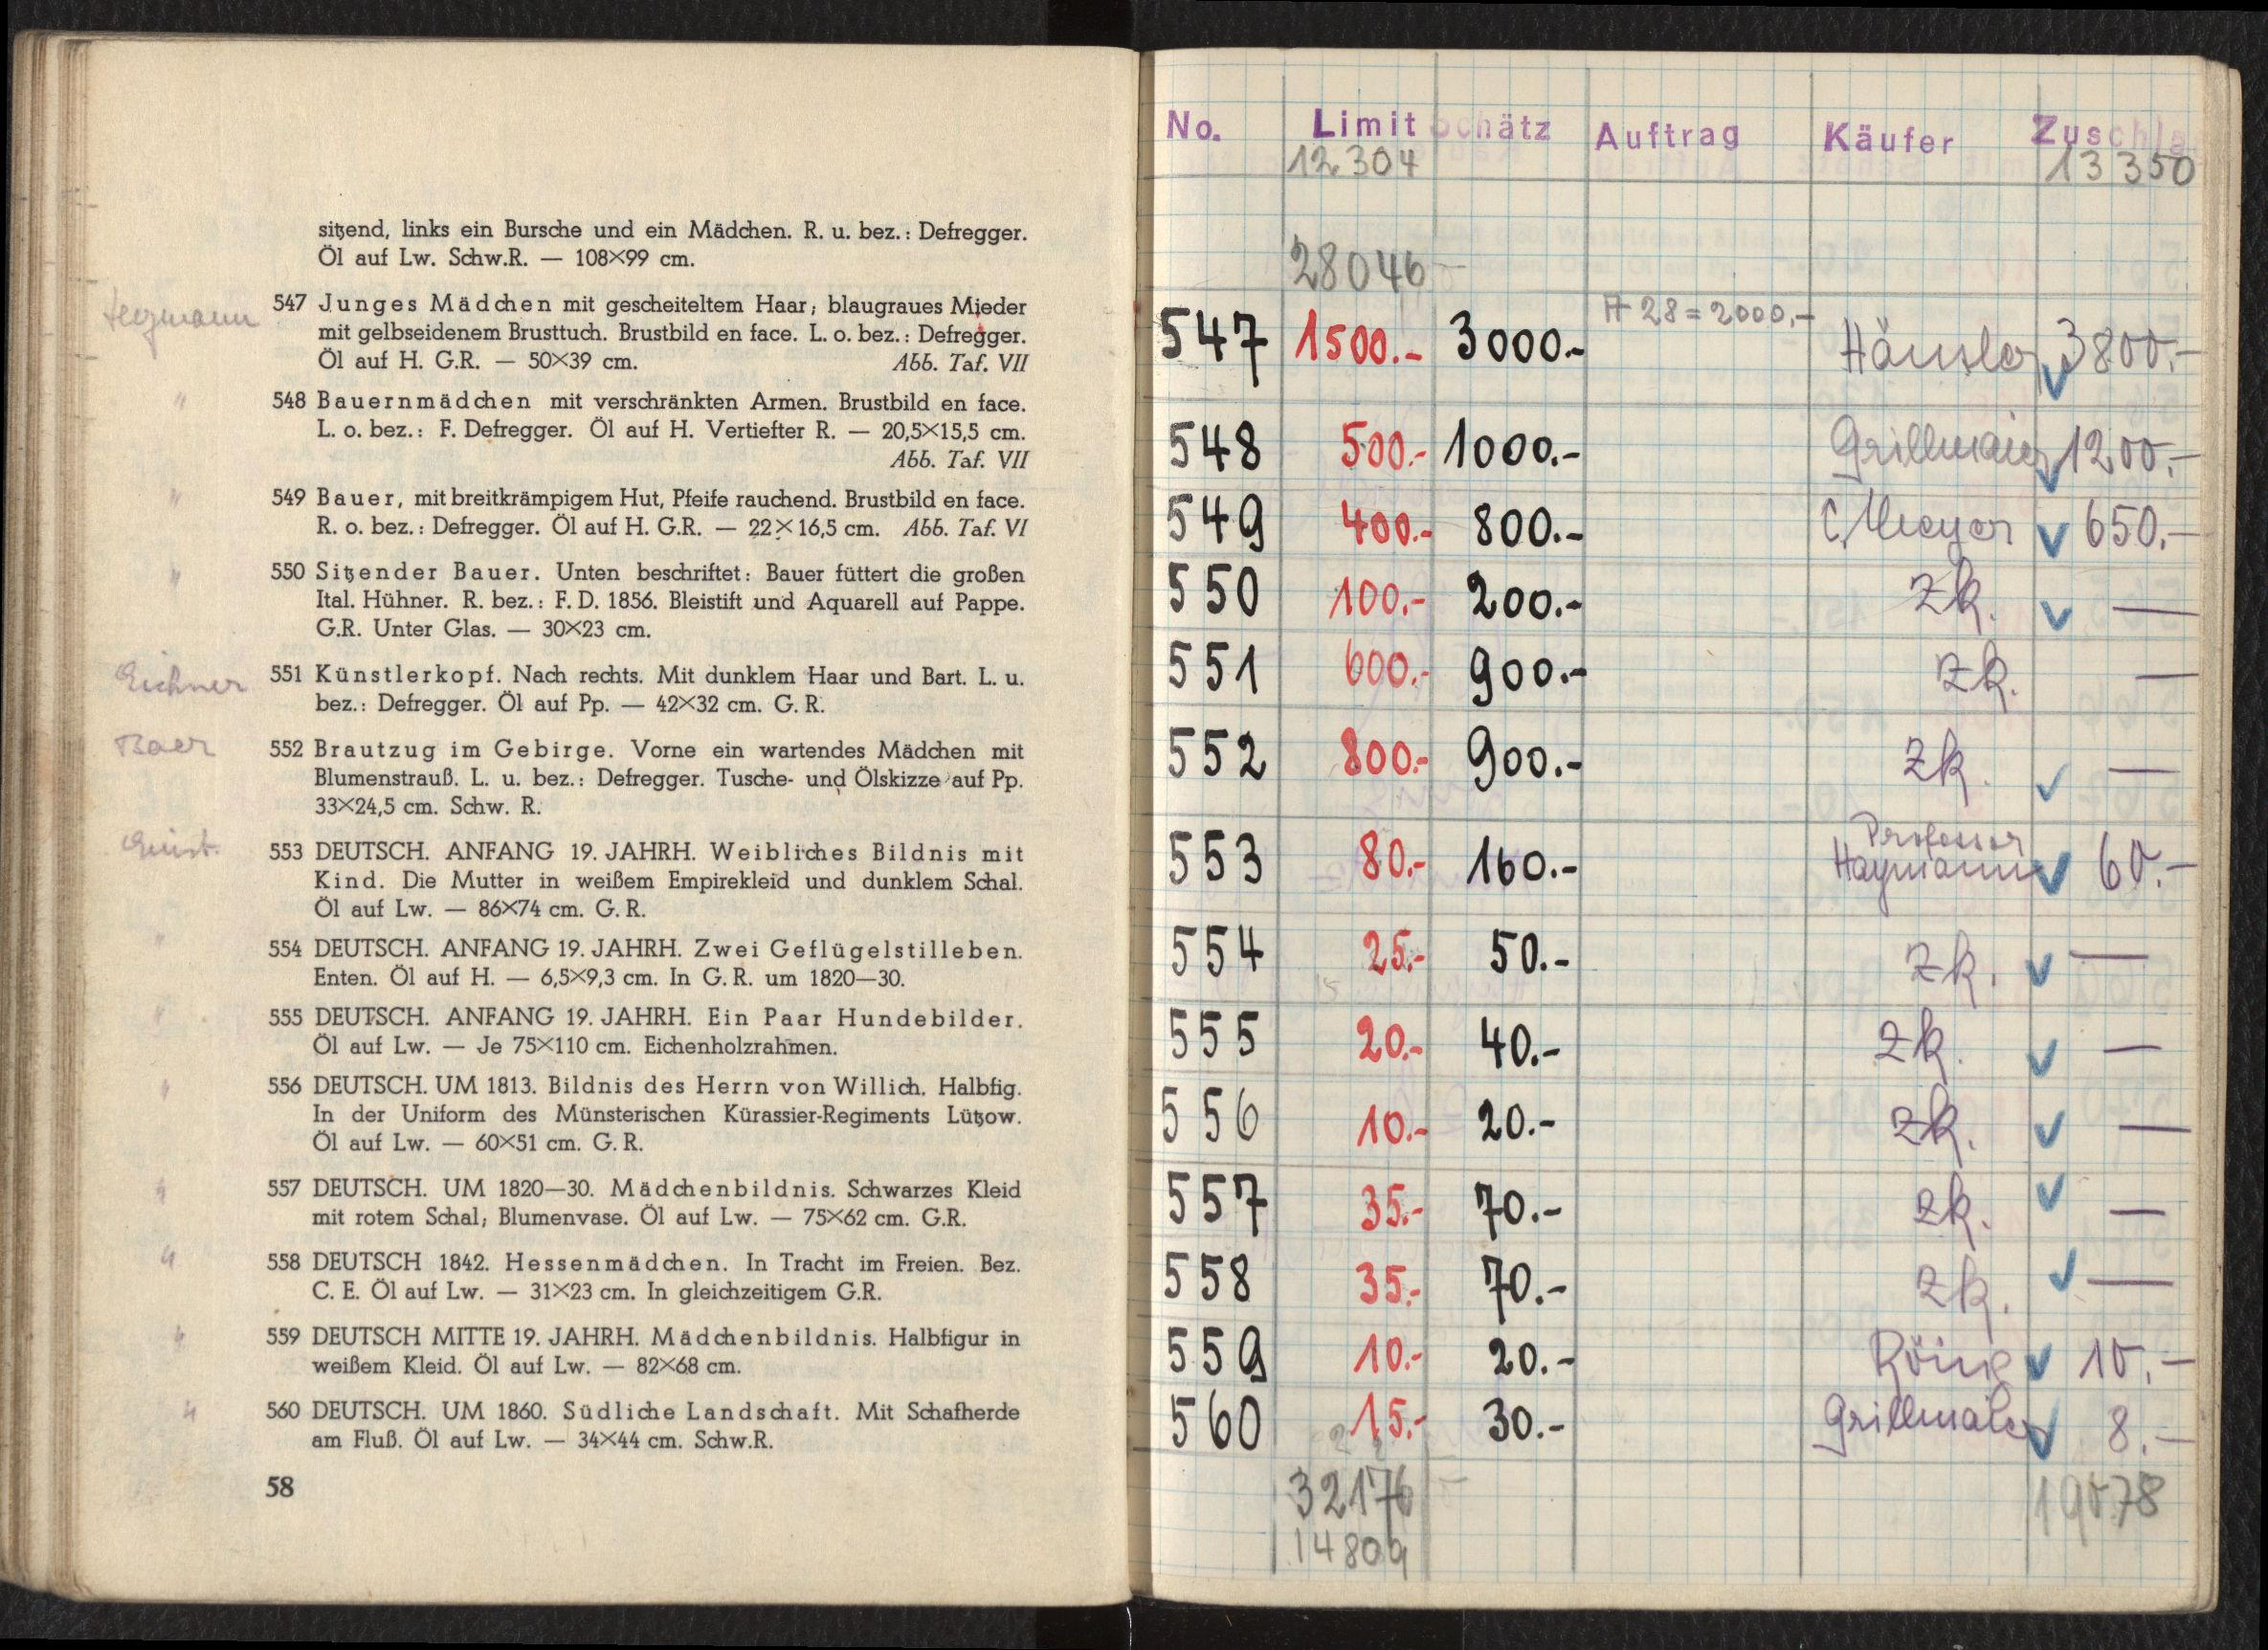 sitzend, links ein Bursche und ein Mädchen. R. u. bez.: Defregger.
Öl auf Lw. Schw.R. — 108×99 cm.
547 Junges Mädchen mit gescheiteltem Haar; blaugraues Mieder
mit gelbseidenem Brusttuch. Brustbild en face. L. o. bez.: Defregger.
Öl auf H. G.R. — 50×39 cm. Abb. Taf. VII
" 548 Bauernmädchen mit verschränkten Armen. Brustbild en face.
L. o. bez.: F. Defregger. Öl auf H. Vertiefter R. — 20,5×15,5 cm.
Abb. Taf. VII
" 549 Bauer, mit breitkrämpigem Hut, Pfeife rauchend. Brustbild en face.
R. o. bez.: Defregger. Öl auf H. G.R. — 22×16,5 cm. Abb. Taf. VI
" 550 Sitzender Bauer. Unten beschriftet: Bauer füttert die großen
Ital. Hühner. R. bez.: F. D. 1856. Bleistift und Aquarell auf Pappe.
G.R. Unter Glas. — 30×23 cm.
Eichner 551 Künstlerkopf. Nach rechts. Mit dunklem Haar und Bart. L. u.
bez.: Defregger. Öl auf Pp. — 42×32 cm. G. R.
Baer 552 Brautzug im Gebirge. Vorne ein wartendes Mädchen mit
Blumenstrauß. L. u. bez.: Defregger. Tusche- und Ölskizze auf Pp.
33×24,5 cm. Schw. R.
553 DEUTSCH. ANFANG 19. JAHRH. Weibliches Bildnis mit
Kind. Die Mutter in weißem Empirekleid und dunklem Schal.
Öl auf Lw. — 86×74 cm. G. R.
" 554 DEUTSCH. ANFANG 19. JAHRH. Zwei Geflügelstilleben.
Enten. Öl auf H. — 6,5×9,3 cm. In G. R. um 1820—30.
" 555 DEUTSCH. ANFANG 19. JAHRH. Ein Paar Hundebilder.
Öl auf Lw. — Je 75×110 cm. Eichenholzrahmen.
" 556 DEUTSCH. UM 1813. Bildnis des Herrn von Willich. Halbfig.
In der Uniform des Münsterischen Kürassier-Regiments Lützow.
Öl auf Lw. — 60×51 cm. G. R.
" 557 DEUTSCH. UM 1820—30. Mädchenbildnis. Schwarzes Kleid
mit rotem Schal; Blumenvase. Öl auf Lw. — 75×62 cm. G.R.
" 558 DEUTSCH 1842. Hessenmädchen. In Tracht im Freien. Bez.
C. E. Öl auf Lw. — 31×23 cm. In gleichzeitigem G.R.
" 559 DEUTSCH MITTE 19. JAHRH. Mädchenbildnis. Halbfigur in
weißem Kleid. Öl auf Lw. — 82×68 cm.
" 560 DEUTSCH. UM 1860. Südliche Landschaft. Mit Schafherde
am Fluß. Öl auf Lw. — 34×44 cm. Schw.R.
58
No. Limit Schätz Auftrag Käufer Zuschla
12304 13350
28046 —
A 28 = 2000,-
547 1500.- 3000.- Häusler 3800.-
548 500.- 1000.- Grillmaier 1200.-
549 400.- 800.- C. Meyer 650.-
550 100.- 200.- zk. —
551 600.- 900.- zk. —
552 800.- 900.- zk. —
Professor
553 80.- 160.- Haymann 60.-
554 25.- 50.- zk. —
555 20.- 40.- zk. —
556 10.- 20.- zk. —
557 35.- 70.- zk. —
558 35.- 70.- zk. —
559 10.- 20.- 10.-
560 15.- 30.- Grillmaier 8.-
32176 — 19078
14809